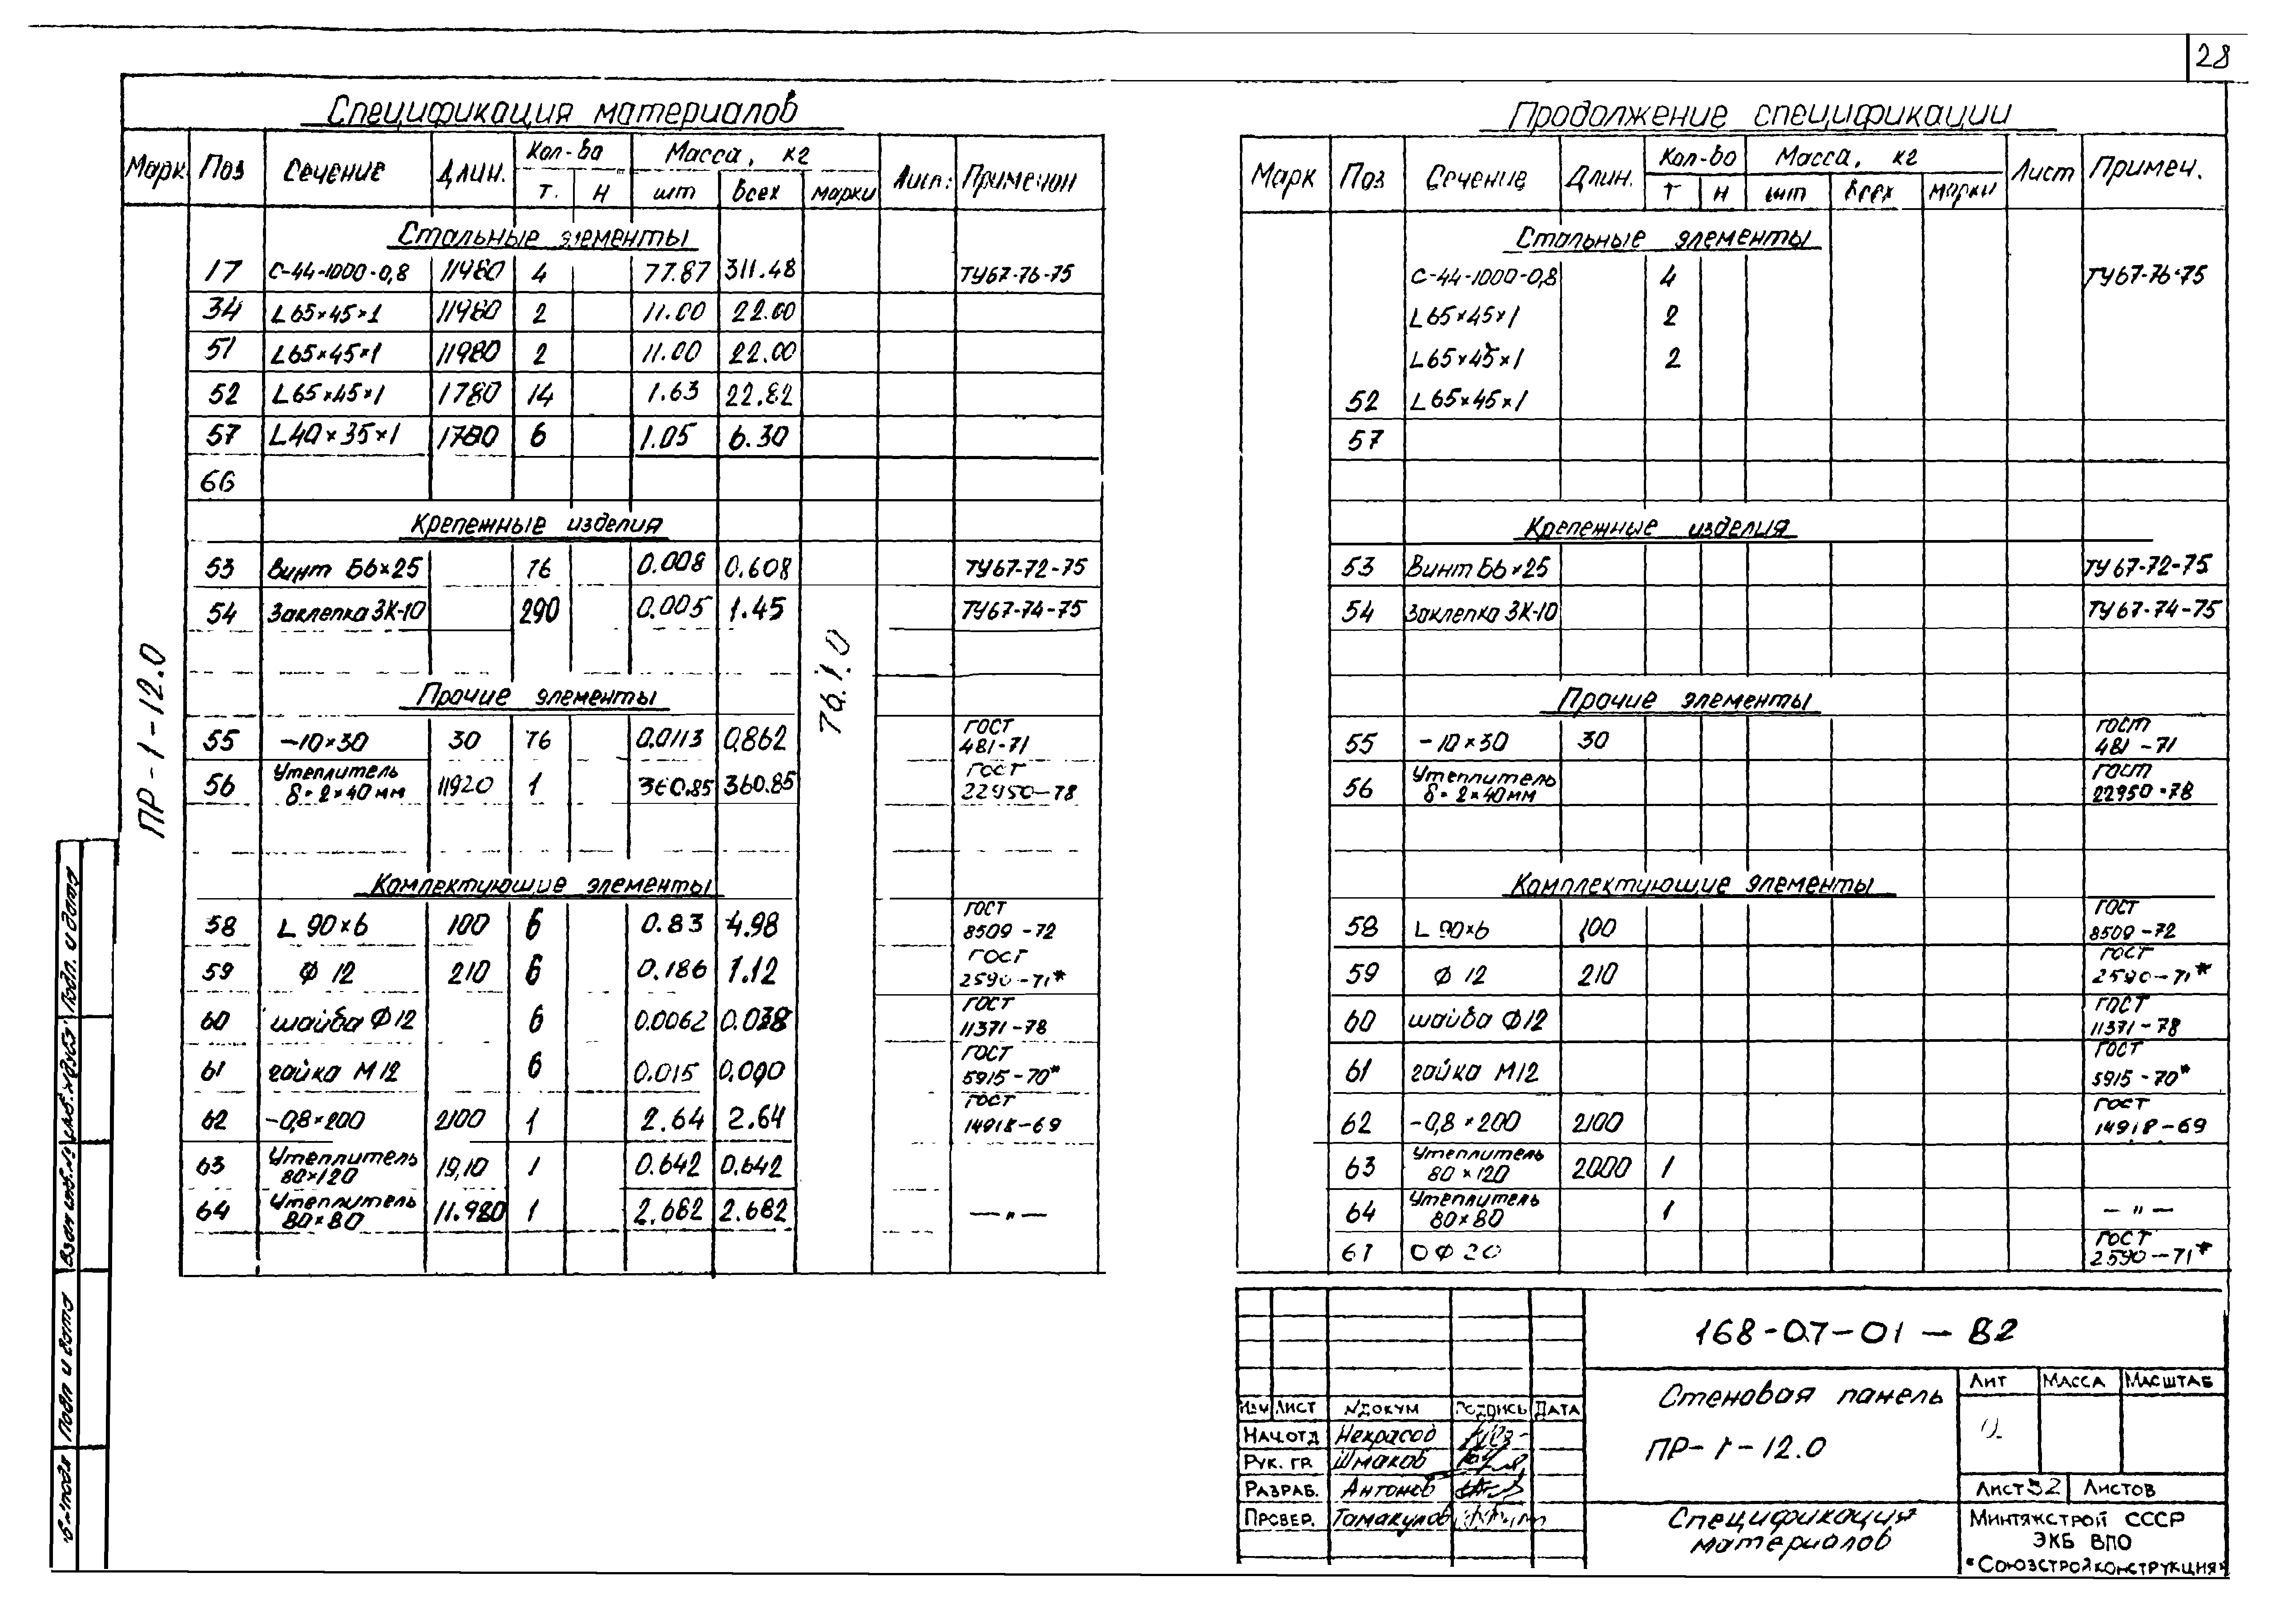 28
Спецификация материалов
Марк. Поз Сечение Длин. Кол-во Масса, кг Лист: Примечан
т. н шт всех марки
Стальные элементы
17 С-44-1000-0,8 11980 4 77.87 311.48 ТУ67-76-75
34 L65×45×1 11980 2 11.00 22.00
51 L65×45×1 11980 2 11.00 22.00
52 L65×45×1 1780 14 1.63 22.82
57 L40×35×1 1780 6 1.05 6.30
66
Крепежные изделия
53 Винт Б6×25 76 0.008 0.608 ТУ67-72-75
54 Заклепка ЗК-10 290 0.005 1.45 ТУ67-74-75
Прочие элементы
55 -10×30 30 76 0.0113 0.862 ГОСТ 481-71
56 Утеплитель δ=2×40мм 11920 1 360.85 360.85 ГОСТ 22950-78
Комплектующие элементы
58 L 90×6 100 6 0.83 4.98 ГОСТ 8509-72
59 Ф 12 210 6 0.186 1.12 ГОСТ 2590-71*
60 шайба Ф12 6 0.0062 0.038 ГОСТ 11371-78
61 гайка М12 6 0.015 0.090 ГОСТ 5915-70*
62 -0,8×200 2100 1 2.64 2.64 ГОСТ 14918-69
63 Утеплитель 80×120 19,10 1 0.642 0.642
64 Утеплитель 80×80 11.980 1 2.682 2.682 — " —
ПР-1-12.0
Продолжение спецификации
Марк Поз Сечение Длин. Кол-во Масса, кг Лист Примеч.
т н шт всех марки
Стальные элементы
С-44-1000-0,8 4 ТУ67-76-75
L65×45×1 2
L65×45×1 2
52 L65×45×1
57
Крепежные изделия
53 Винт Б6×25 ТУ67-72-75
54 Заклепка ЗК-10 ТУ67-74-75
Прочие элементы
55 -10×30 30 ГОСТ 481-71
56 Утеплитель δ=2×40мм ГОСТ 22950-78
Комплектующие элементы
58 L 90×6 100 ГОСТ 8509-72
59 Ф 12 210 ГОСТ 2590-71*
60 шайба Ф12 ГОСТ 11371-78
61 гайка М12 ГОСТ 5915-70*
62 -0,8×200 2100 ГОСТ 14918-69
63 Утеплитель 80×120 2000 1
64 Утеплитель 80×80 1 — " —
61 ОФ20 ГОСТ 2590-71*
168-07-01-В2
Изм Лист №докум Подпись Дата
Нач.отд Некрасов
Рук. гр. Шмаков
Разраб. Антонов
Провер. Томакулов
Стеновая панель
ПР-1-12.0
Спецификация
материалов
Лит Масса Масштаб
Лист 52 Листов
Минтяжстрой СССР
ЭКБ ВПО
"Союзстройконструкция"
Подп. и дата
Взам инв.№
Подп и дата